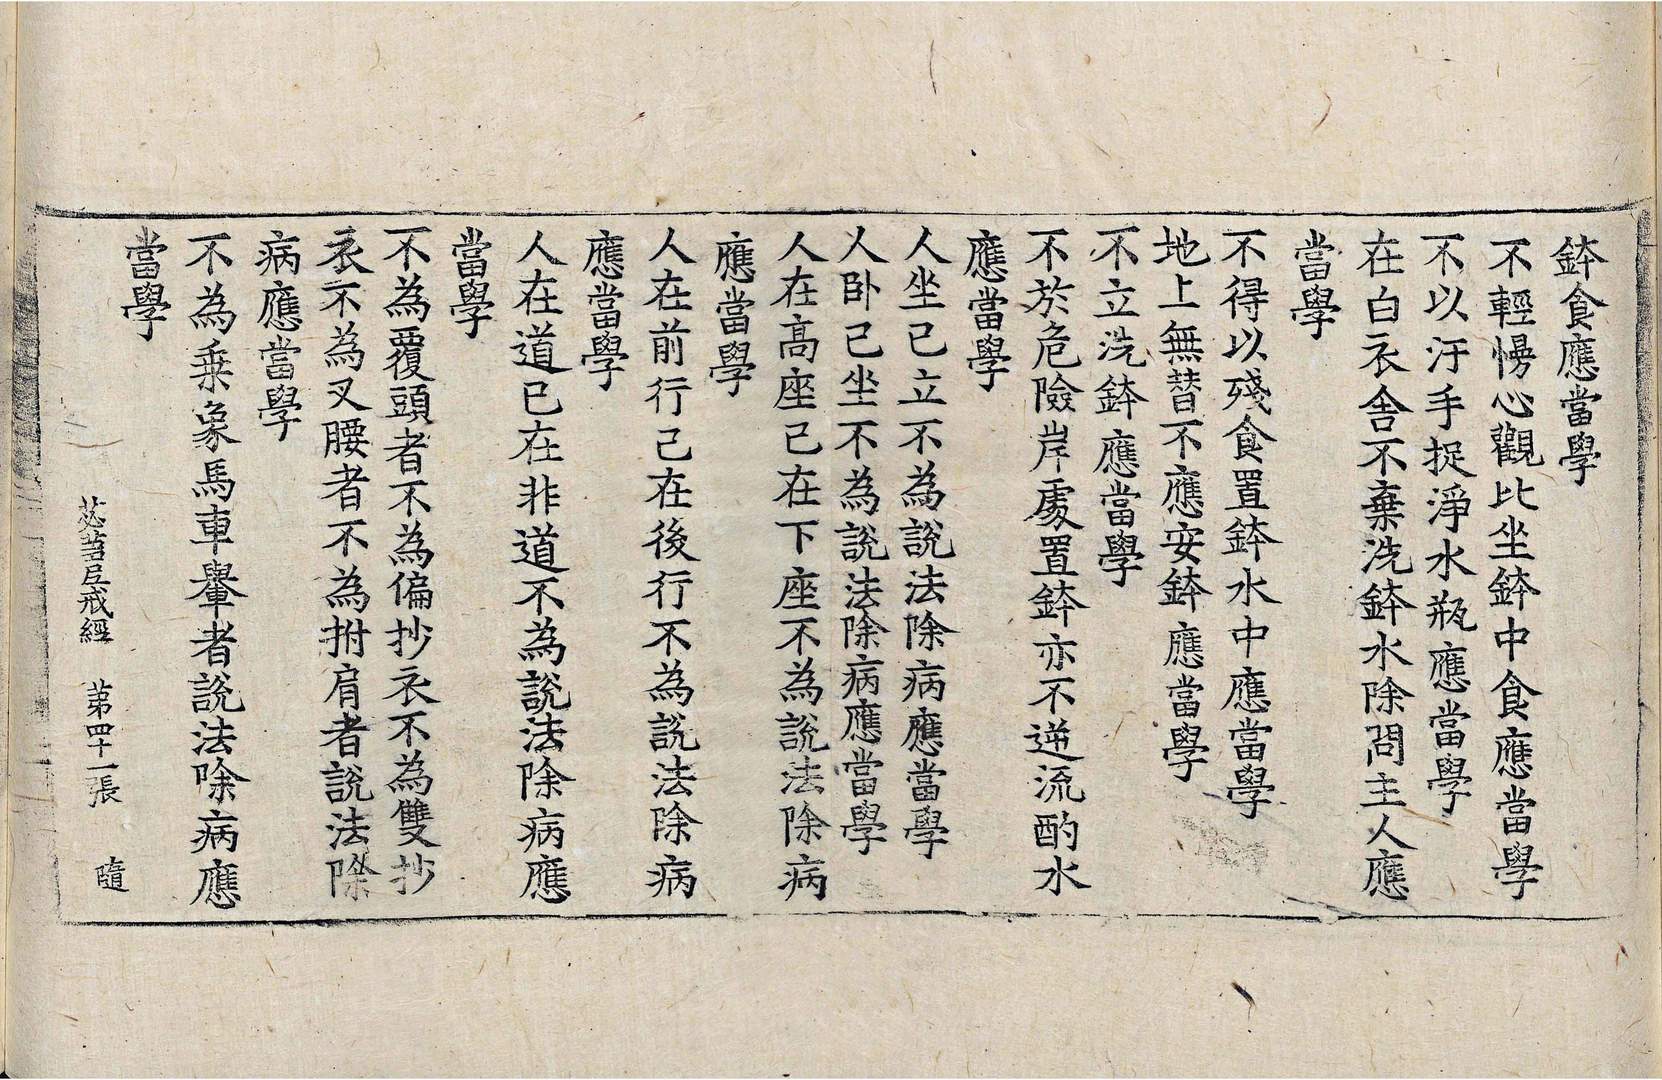 鉢食應當學
不輕慢心觀比坐鉢中食應當學
不以汙手捉淨水瓶應當學
在白衣舍不棄洗鉢水除問主人應
當學
不得以殘食置鉢水中應當學
地上無替不應安鉢應當學
不立洗鉢應當學
不於危險岸處置鉢亦不逆流酌水
應當學
人坐己立不為說法除病應當學
人臥己坐不為說法除病應當學
人在高座己在下座不為說法除病
應當學
人在前行己在後行不為說法除病
應當學
人在道己在非道不為說法除病應
當學
不為覆頭者不為偏抄衣不為雙抄
衣不為叉腰者不為拊肩者說法除
病應當學
不為乗象馬車轝者說法除病應
當學
苾蒭尼戒經 第四十一張 隨